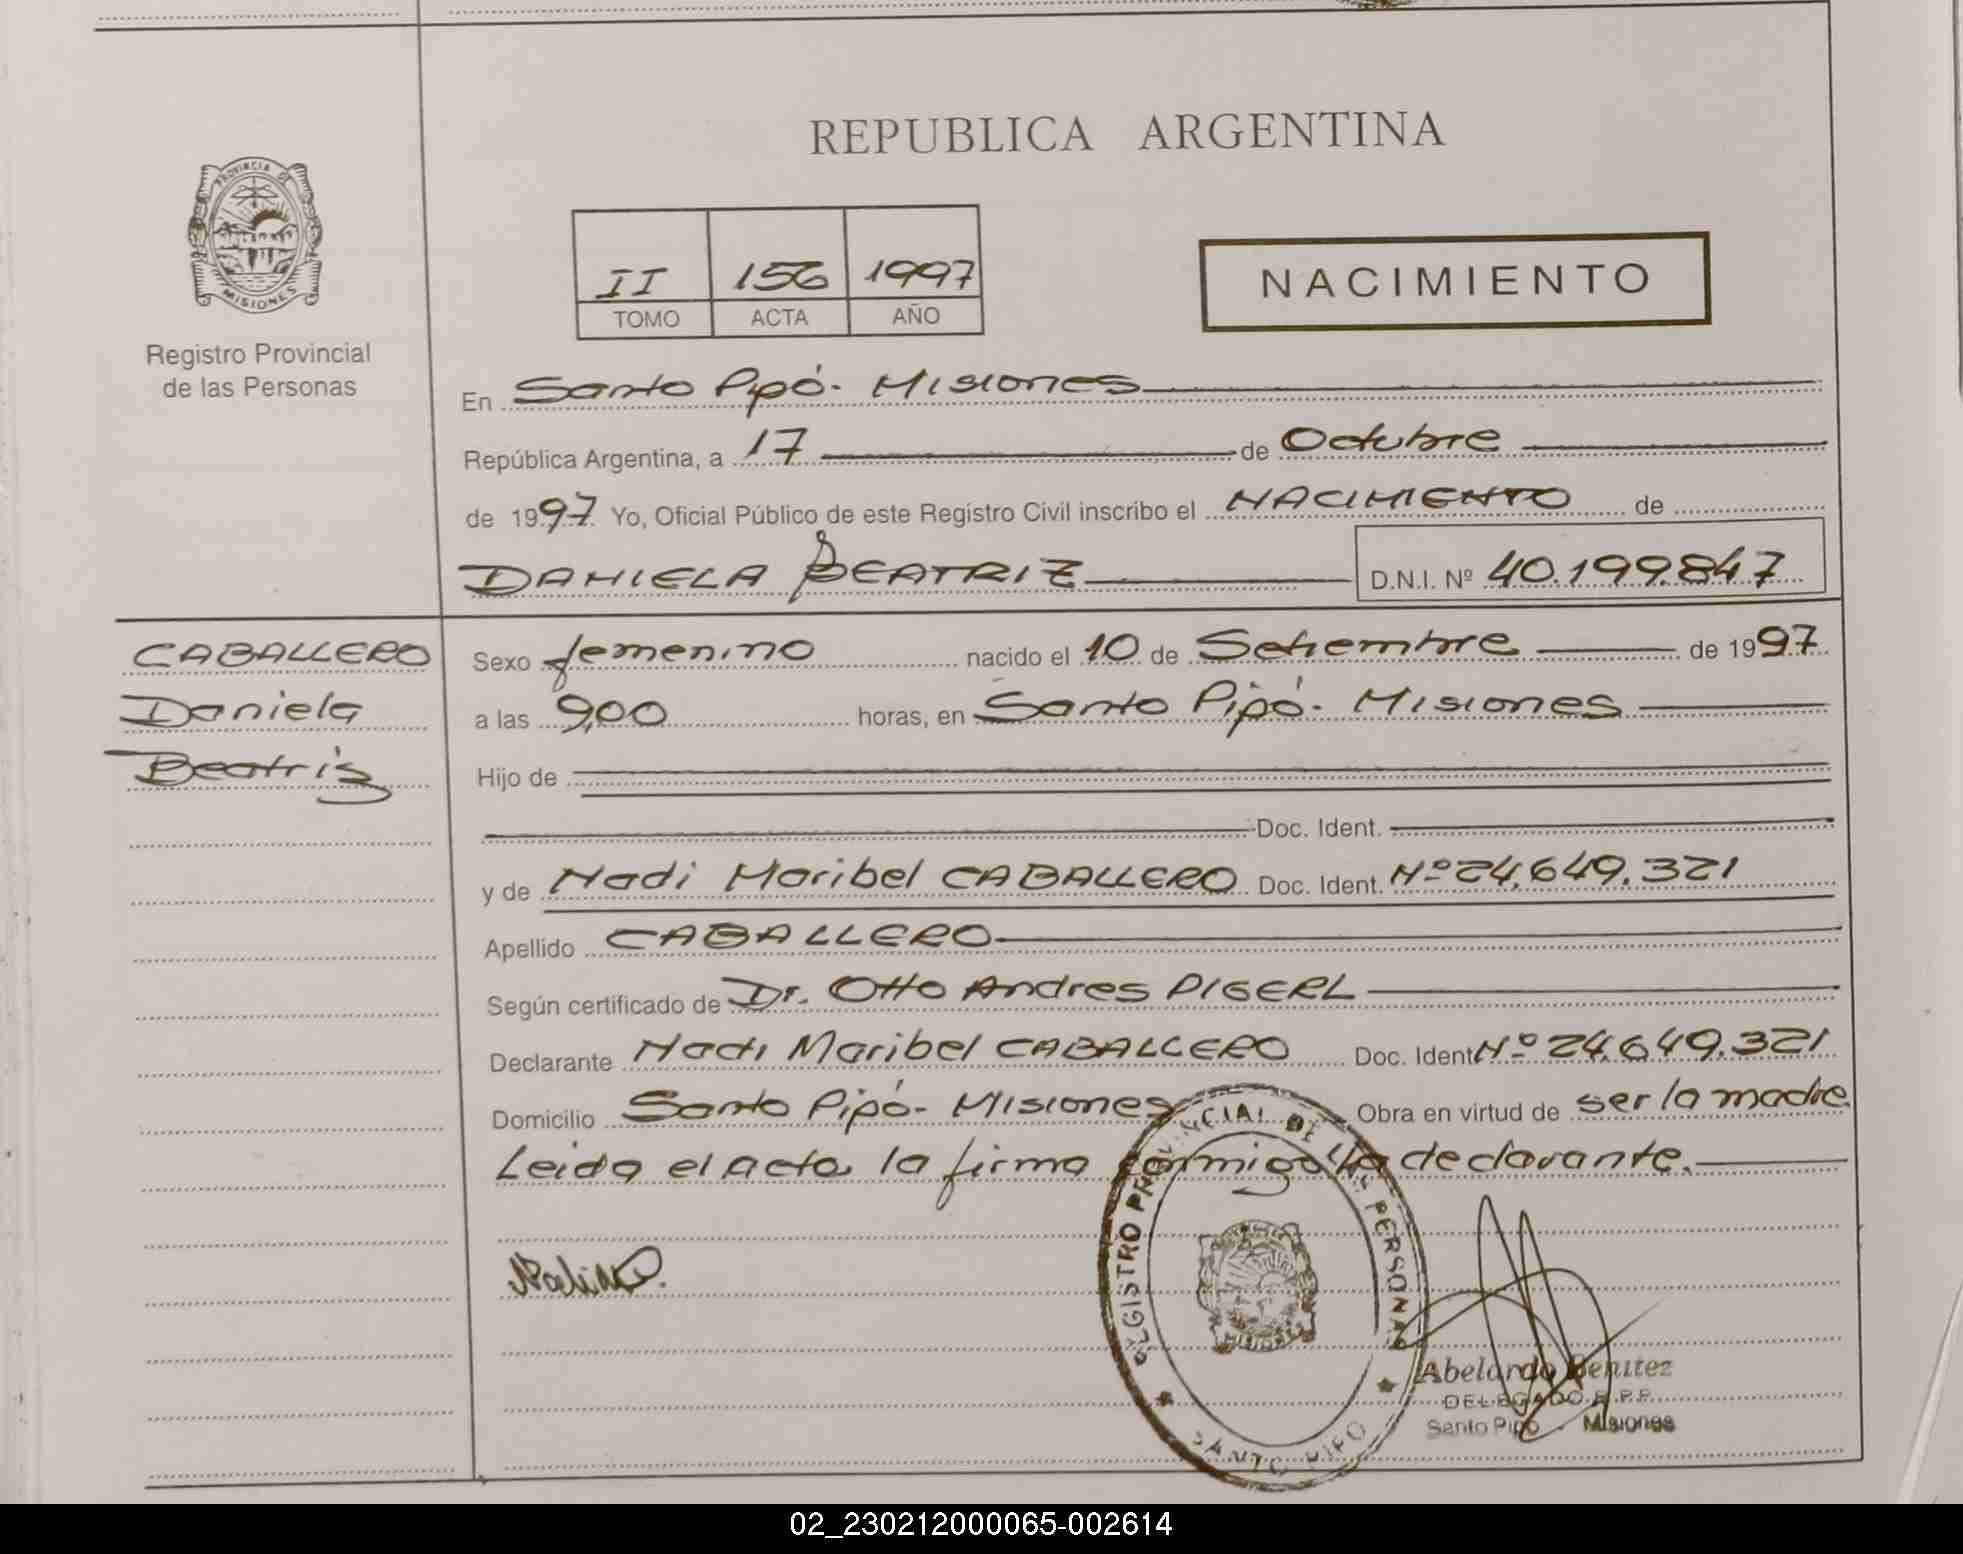 REPUBLICA ARGENTINA
PROVINCIA DE
MISIONES
Registro Provincial
de las Personas
II 156 1997
TOMO ACTA AÑO
NACIMIENTO
En Santo Pipó - Misiones
República Argentina, a 17 de Octubre
de 1997 Yo, Oficial Público de este Registro Civil inscribo el NACIMIENTO de
DANIELA BEATRIZ D.N.I. Nº 40.199.847
CABALLERO
Daniela
Beatriz
Sexo femenino nacido el 10 de Setiembre de 1997
a las 9,00 horas, en Santo Pipó - Misiones
Hijo de
Doc. Ident.
y de Nadi Maribel CABALLERO Doc. Ident. Nº 24.649.321
Apellido CABALLERO
Según certificado de Dr. Otto Andres PIGERL
Declarante Nadi Maribel CABALLERO Doc. Ident Nº 24.649.321
Domicilio Santo Pipó - Misiones Obra en virtud de ser la madre
Leida el acta la firma conmigo la declarante.
REGISTRO PROVINCIAL DE LAS PERSONAS
MISIONES
SANTO PIPO
Abelardo Benitez
DELEGADO R.P.P.
Santo Pipo - Misiones
02_230212000065-002614